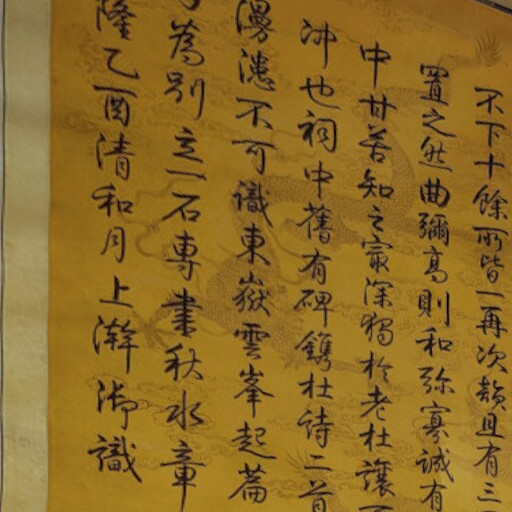 不下十餘所皆一再次韻且有三
置之然曲彌高則和弥寡誠有
中甘苦知之最深獨於老杜讓
沖也祠中舊有碑鐫杜詩二首
漫漶不可識東嶽雲峯起篇
為別立一石專書秋水章
隆乙酉清和月上澣御識